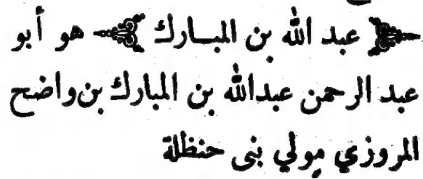 ﴿ عبد الله بن المبارك ﴾ هو أبو
عبد الرحمن عبدالله بن المبارك بن واضح
المروزي مولي بنى حنظلة